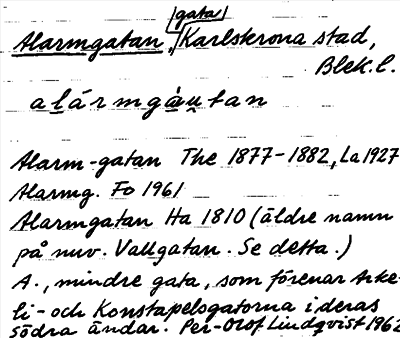 Alarmgatan, gata/ Karlskrona stad,
Blek. l.
alármgàutan
Alarm-gatan The 1877-1882, La 1927
Alarmg. Fo 1961
Alarmgatan Ha 1810 (äldre namn
på nuv. Vallgatan. Se detta.)
A., mindre gata, som förenar Arke-
li- och Konstapelsgatorna i deras
södra ändar. Per-Olof Lindqvist 1962